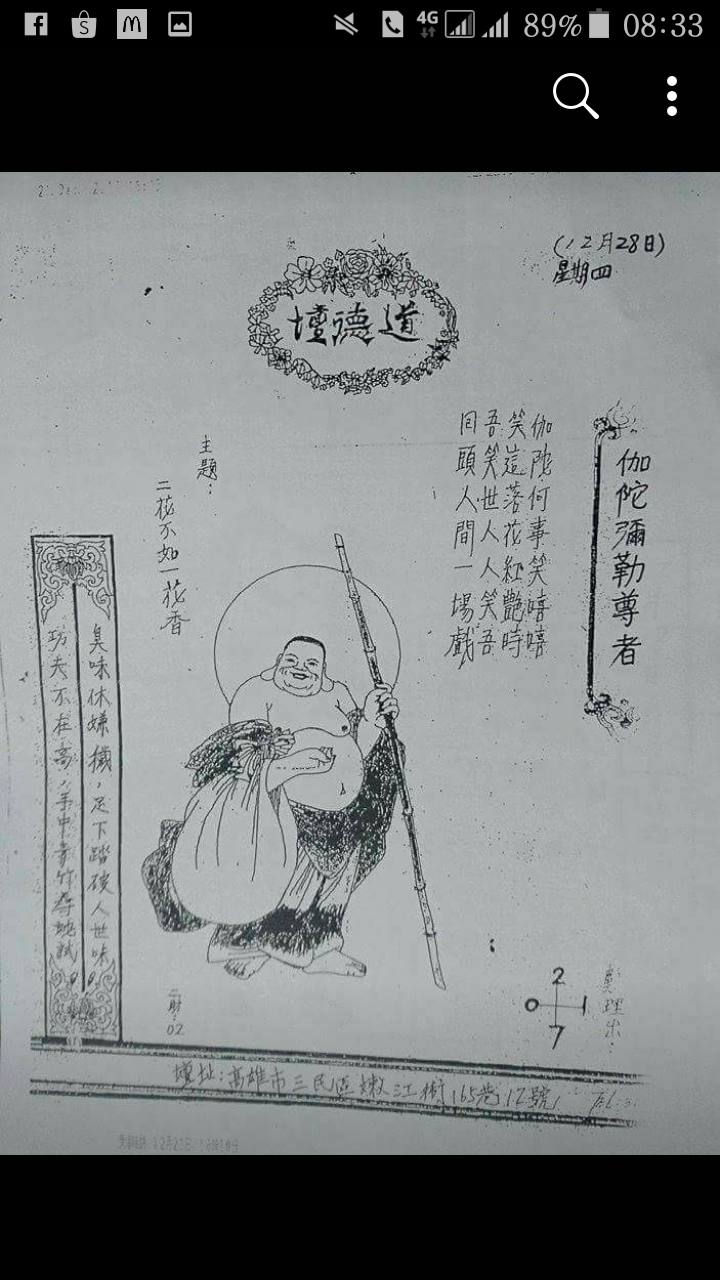 4G 89% 08:33
(12月28日)
星期四
道德壇
伽陀彌勒尊者
伽陀何事笑嘻嘻
笑這落花紅艷時
吾笑世人人笑吾
回頭人間一場戲
主題：
二花不如一花香
臭味休嫌穢，足下踏破人世味
功夫不在高，手中青竹尋
2
0 1
7
真理出：
二財：02
壇址：高雄市三民區嫩江街165巷12號
TEL: